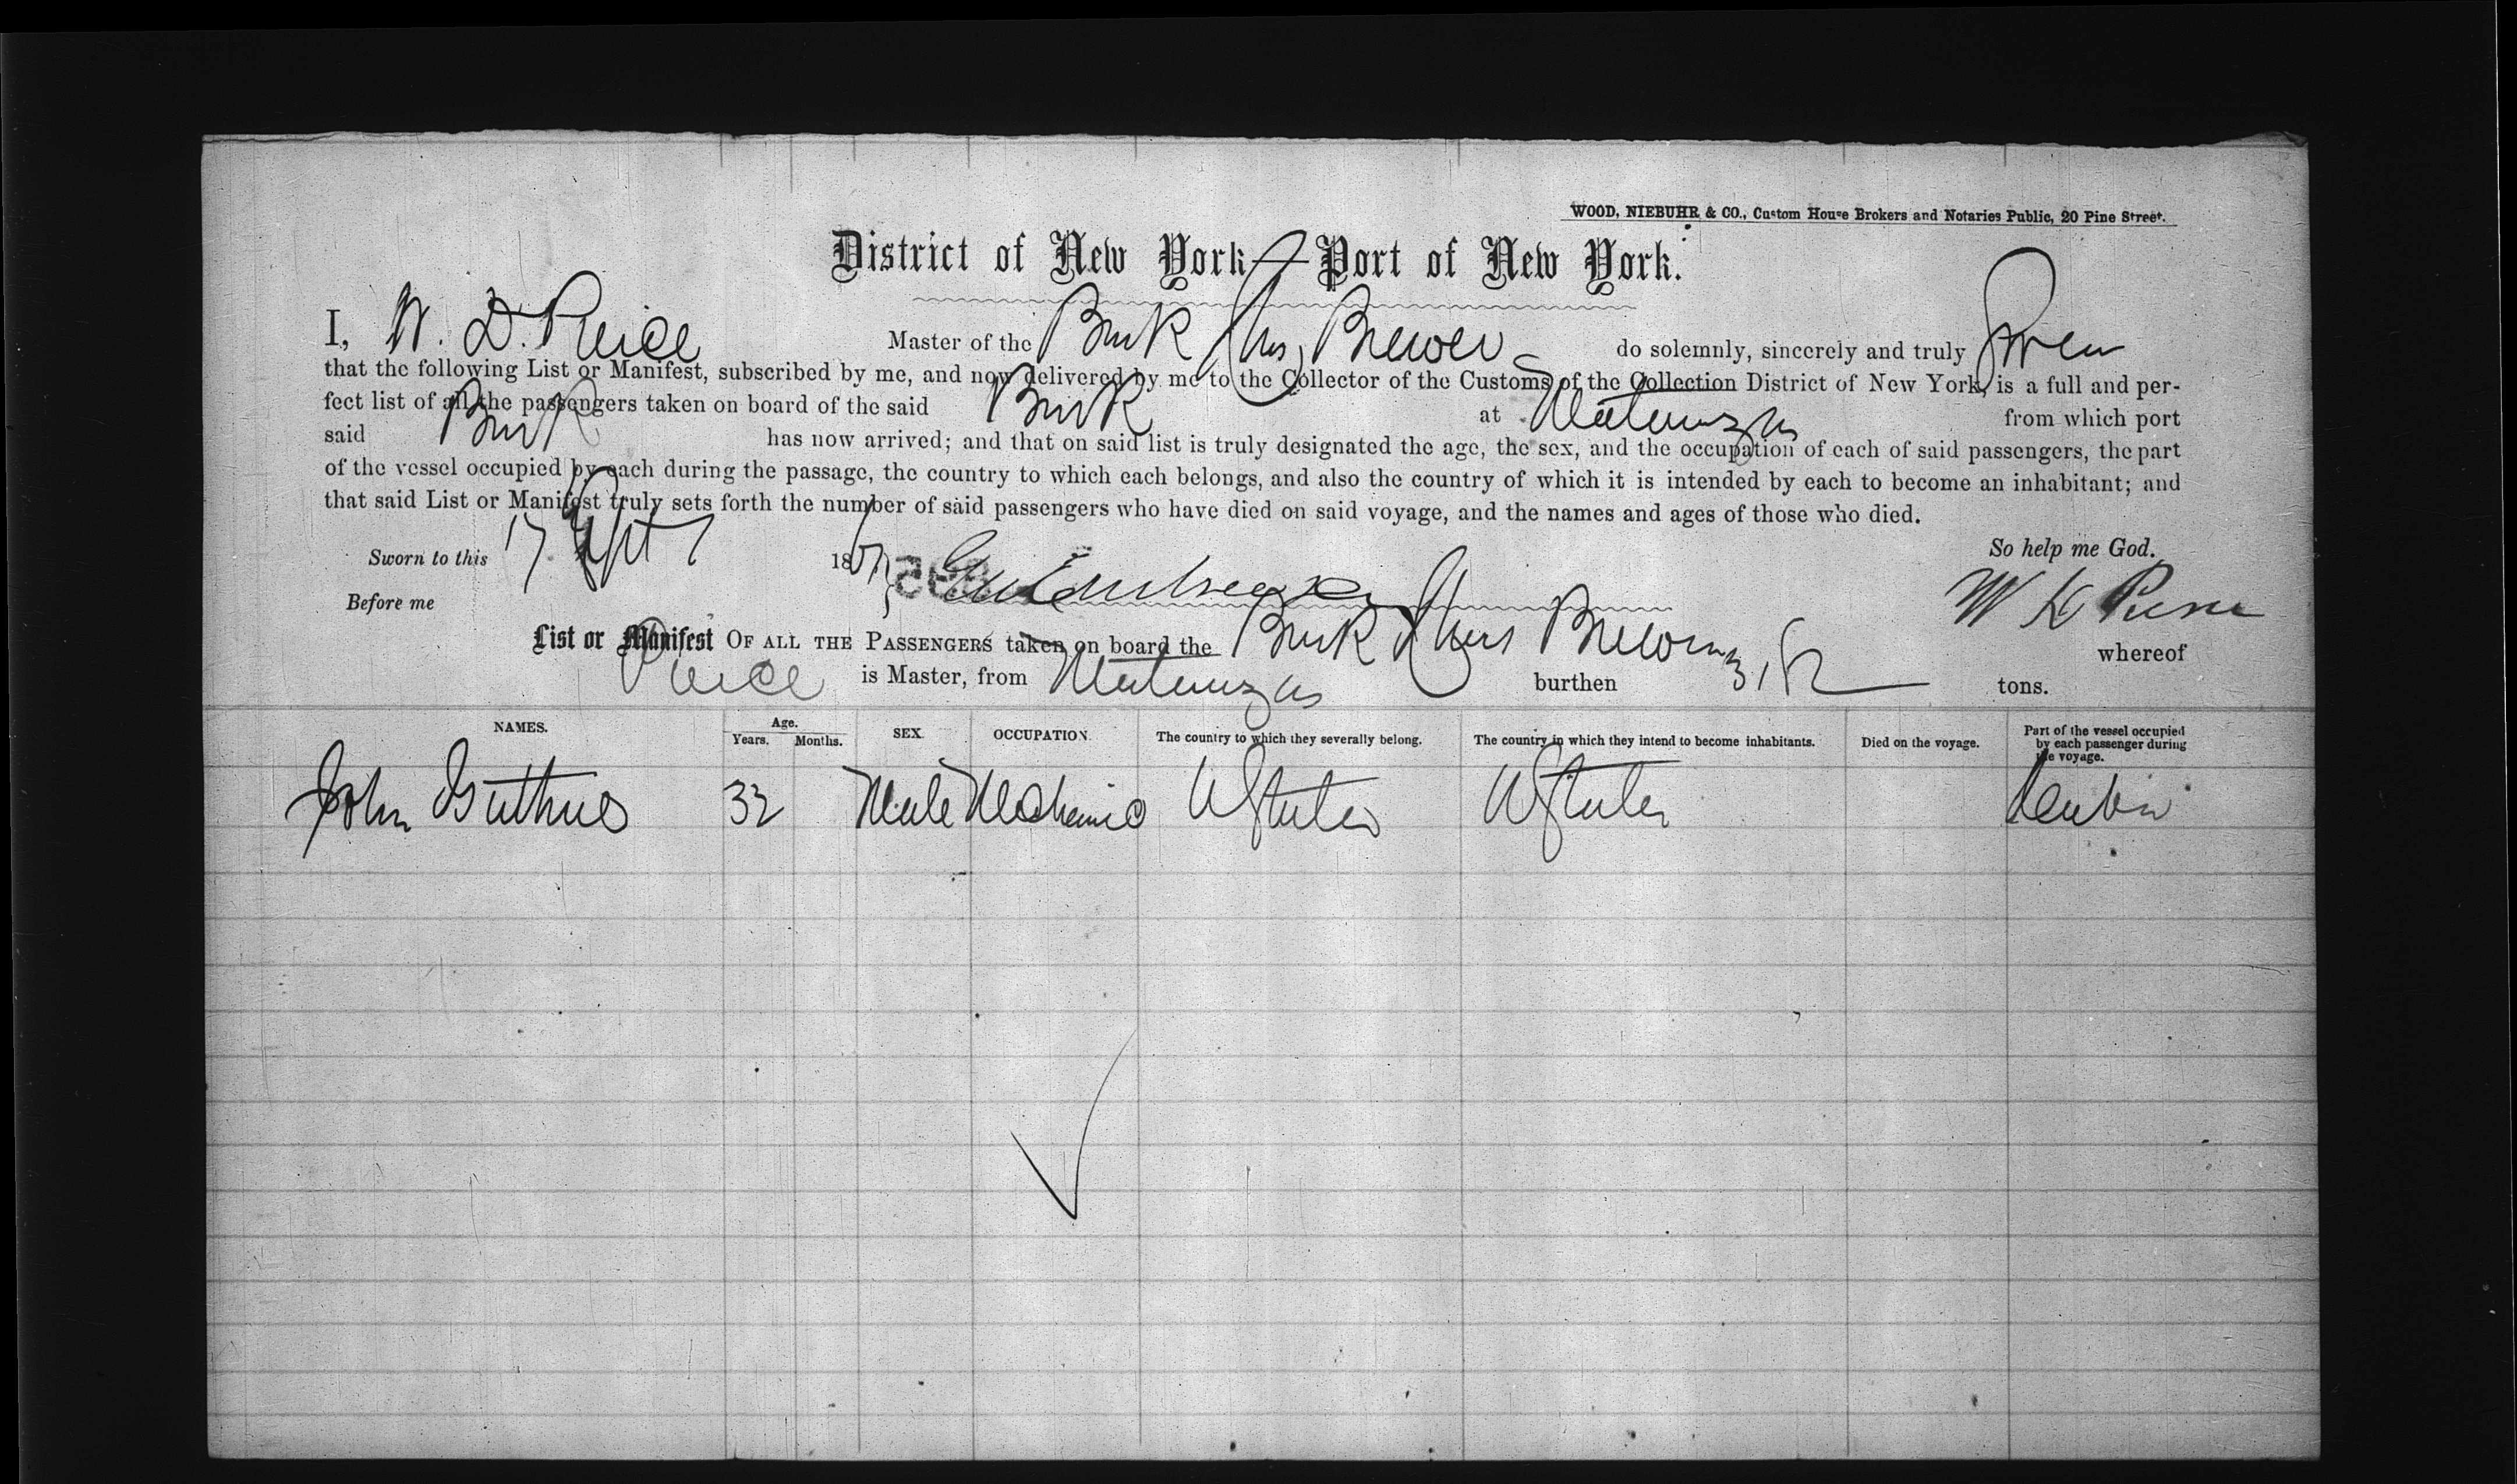 WOOD, NIEBUHR & CO., Custom House Brokers and Notaries Public, 20 Pine Street.
District of New York—Port of New York.
I, W. D. Master of the Bark Brewer do solemnly, sincerely and truly Swear
that the following List or Manifest, subscribed by me, and now delivered by me to the Collector of the Customs of the Collection District of New York, is a full and per-
fect list of all the passengers taken on board of the said Bark at Matanzas from which port
said Bark has now arrived; and that on said list is truly designated the age, the sex, and the occupation of each of said passengers, the part
of the vessel occupied by each during the passage, the country to which each belongs, and also the country of which it is intended by each to become an inhabitant; and
that said List or Manifest truly sets forth the number of said passengers who have died on said voyage, and the names and ages of those who died.
Sworn to this 17 Sept 1867 So help me God.
Before me W
List or Manifest OF ALL THE PASSENGERS taken on board the Bark Brewer whereof
is Master, from Matanzas burthen tons.
NAMES. Age. Years. Months. SEX. OCCUPATION. The country to which they severally belong. The country in which they intend to become inhabitants. Died on the voyage. Part of the vessel occupied by each passenger during the voyage.
John 32 Male Mechanic UStates UStates